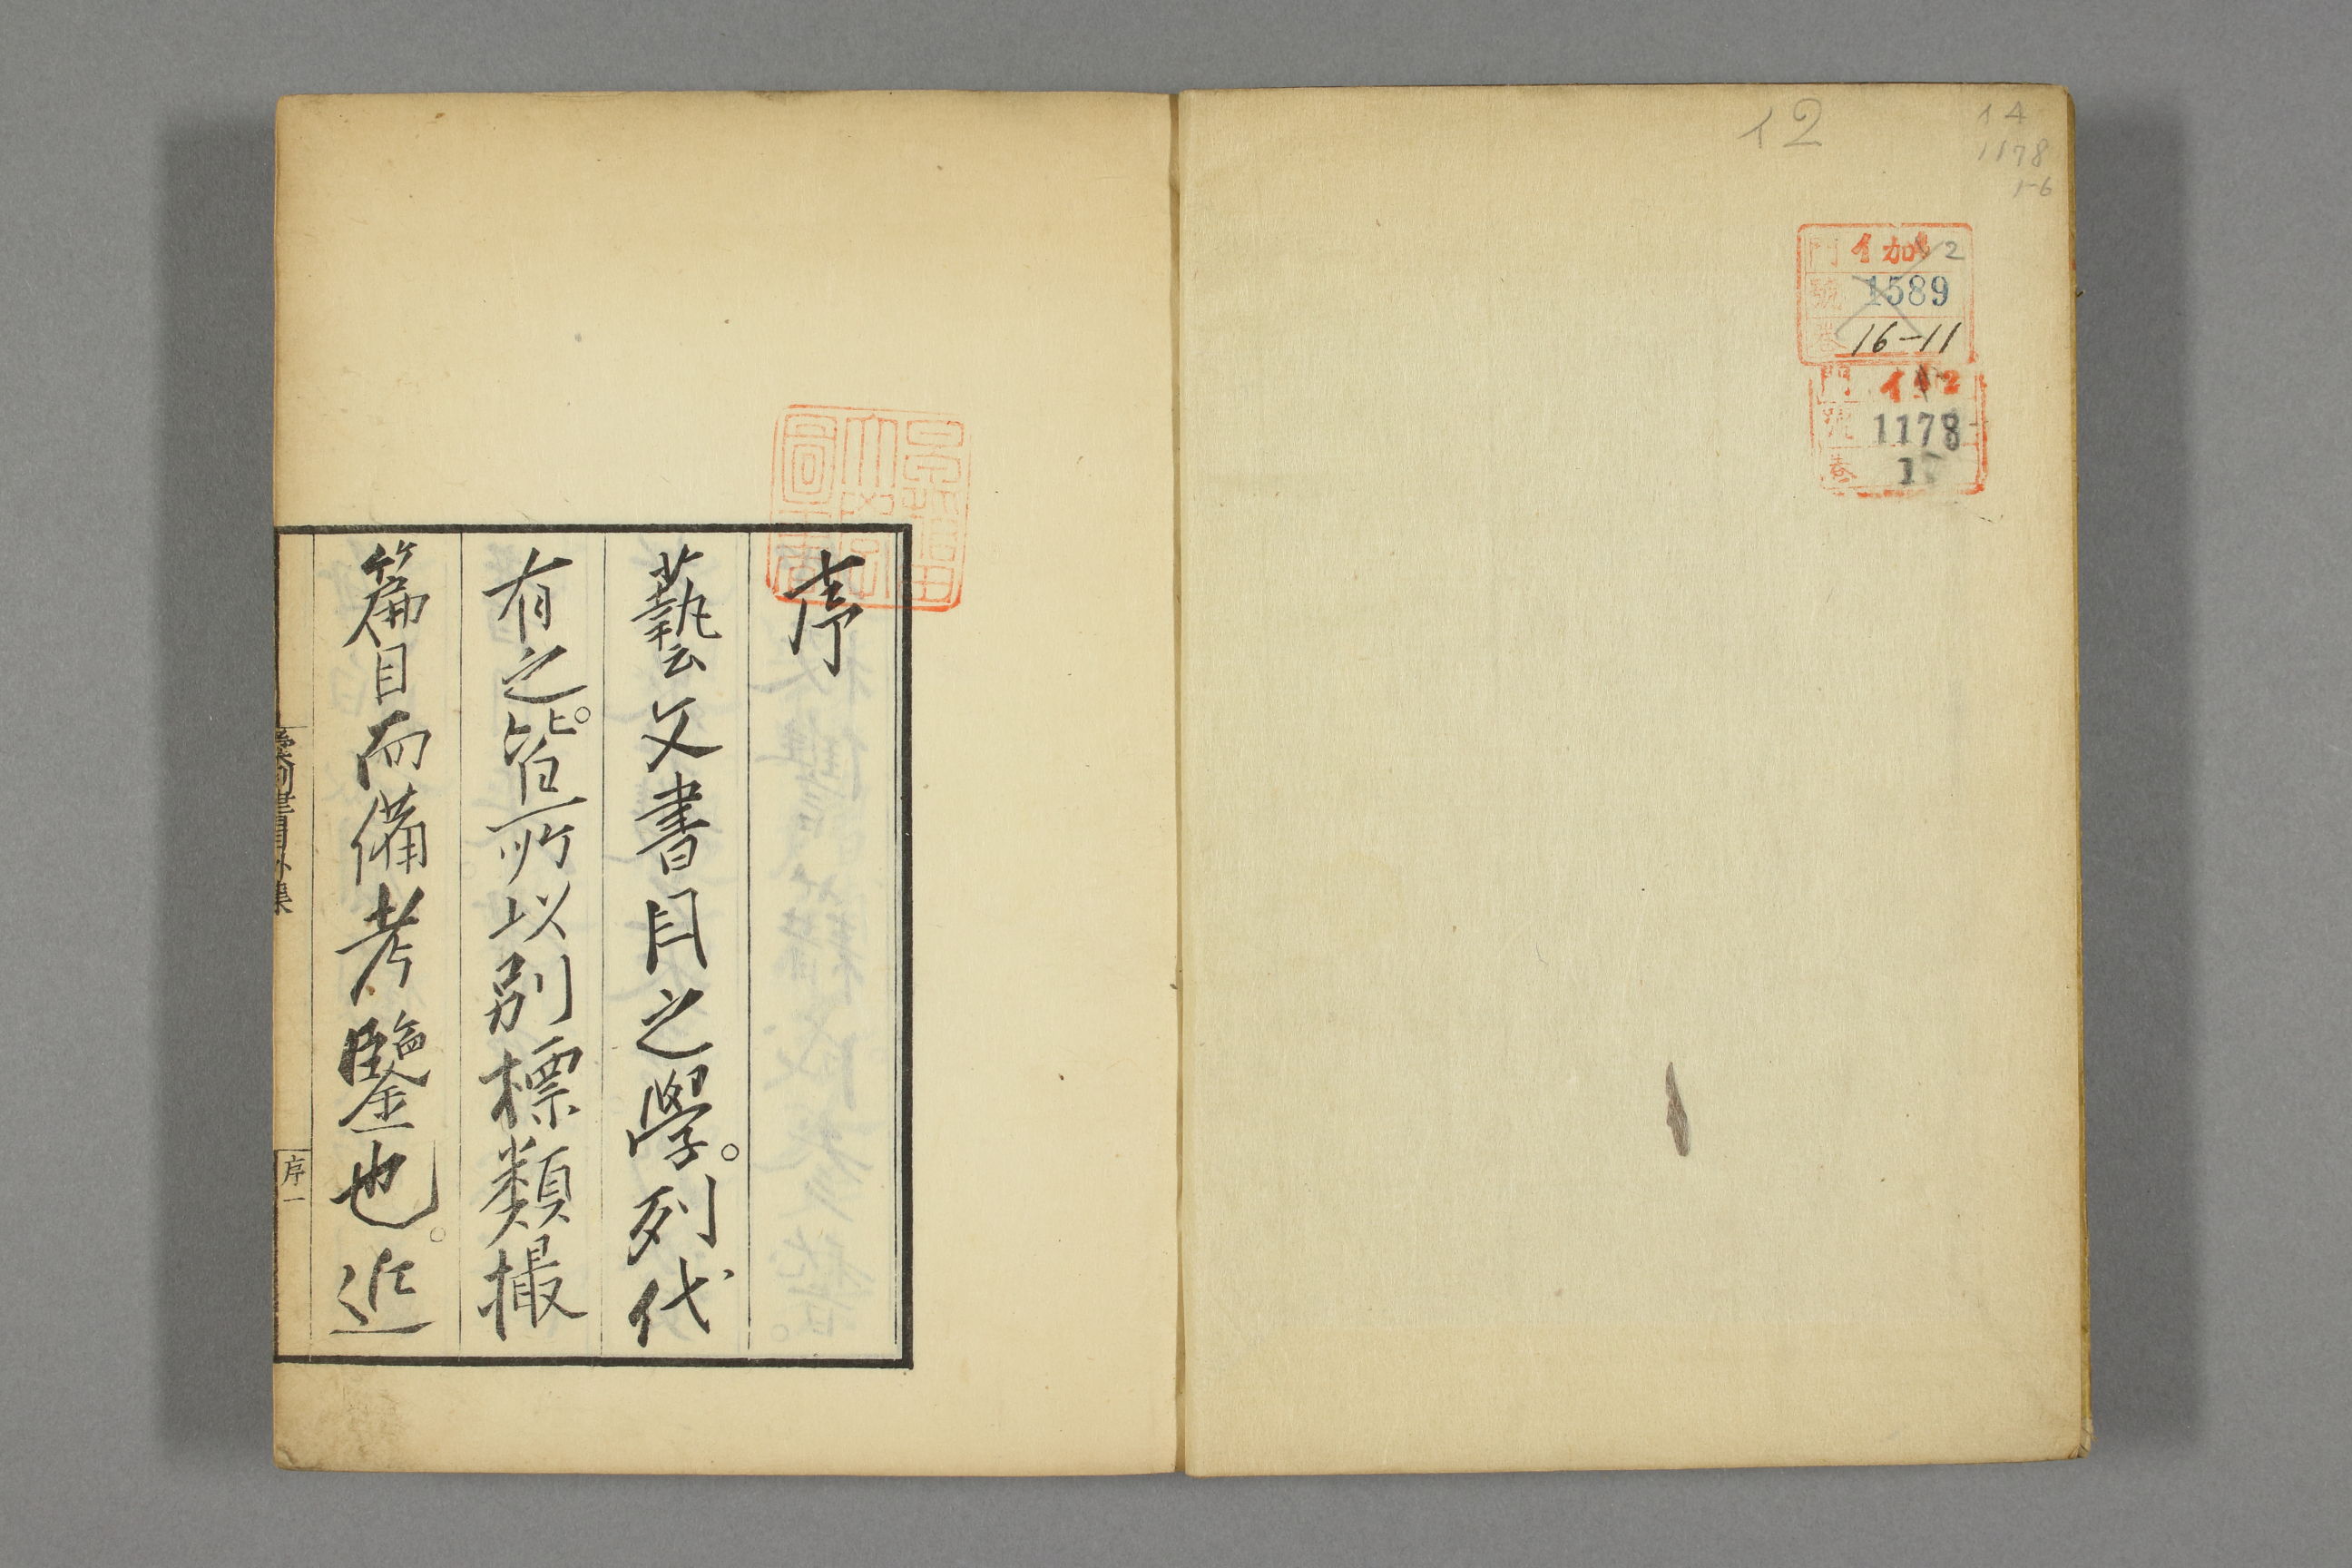 12
14
1178
1-6
門 イ 2
號 1589
卷 16-11
門 イ 2
號 1178
卷 1
早稲田大學圖書
序
藝文書目之學。列代
有之。皆所以別標類撮
篇目而備考鑒也。近
彙刻書目外集
序一